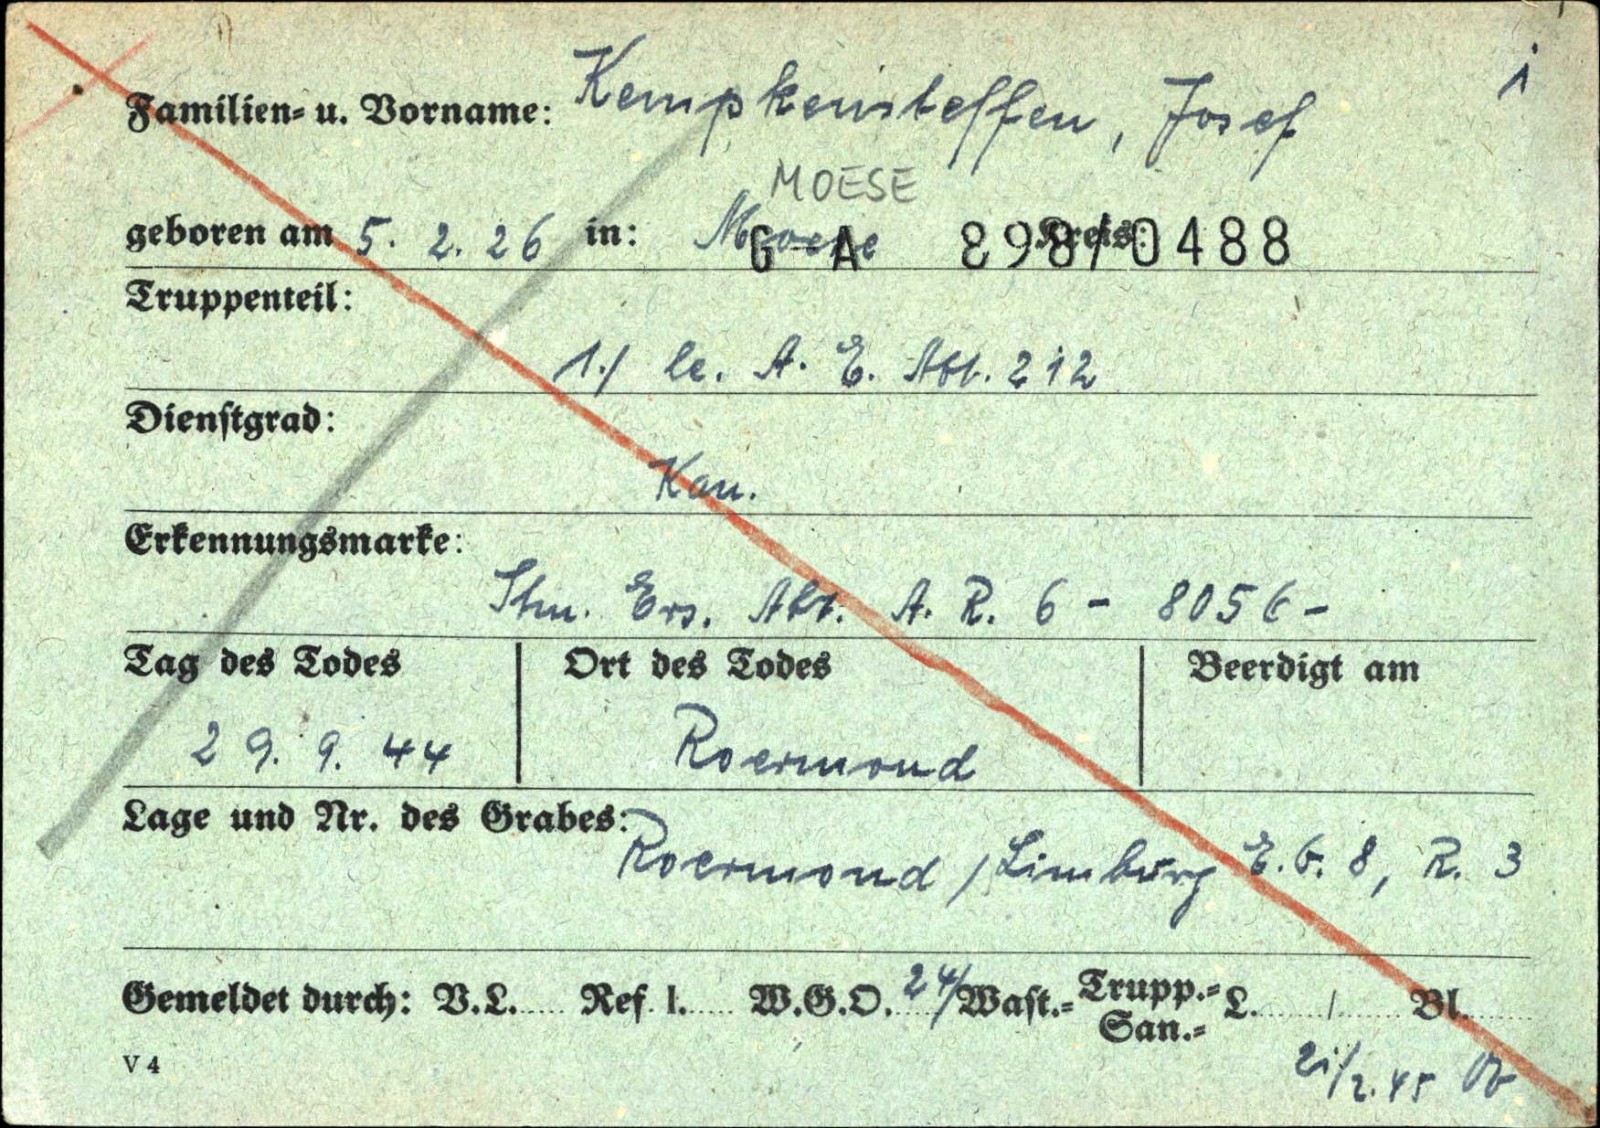 1
Familien- u. Vorname: Kempkensteffen, Josef
MOESE
geboren am 5. 2. 26 in: Moese Kreis:
G-A 898/0488
Truppenteil:
1./ le. A. E. Abt. 212
Dienstgrad:
Kan.
Erkennungsmarke:
Stm. Ers. Abt. A. R. 6 - 8056 -
Tag des Todes Ort des Todes Beerdigt am
29. 9. 44 Roermond
Lage und Nr. des Grabes: Roermond / Limburg E. G. 8, R. 3
Gemeldet durch: V.L..... Ref. I..... W.G.O. 24/Wast.- Trupp.- San.- L......../....... Bl.......
V 4
21/2.45